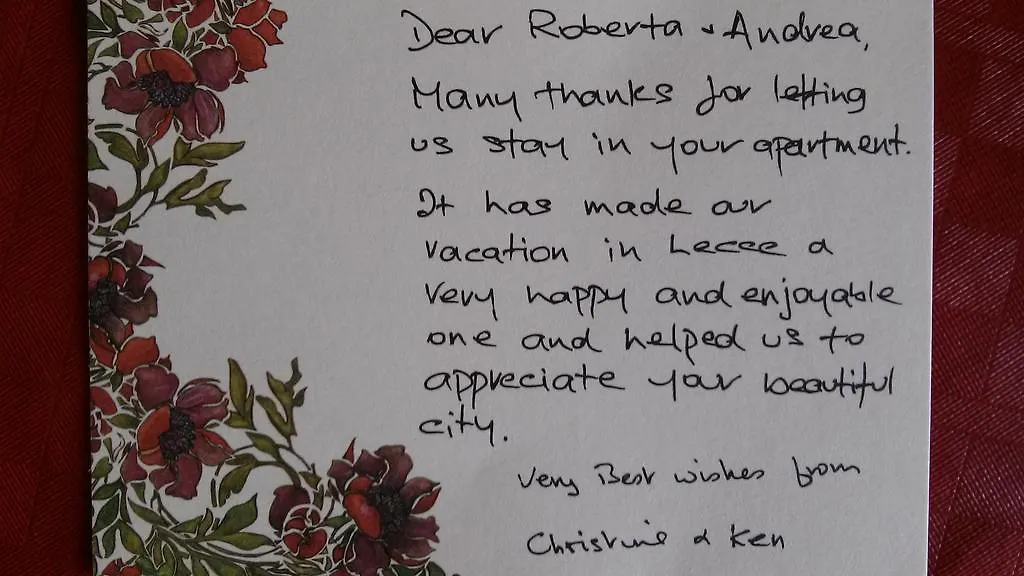 Dear Roberta & Andrea,
Many thanks for letting
us stay in your apartment.
It has made our
vacation in Lecce a
very happy and enjoyable
one and helped us to
appreciate your beautiful
city.
Very Best wishes from
Christine & Ken